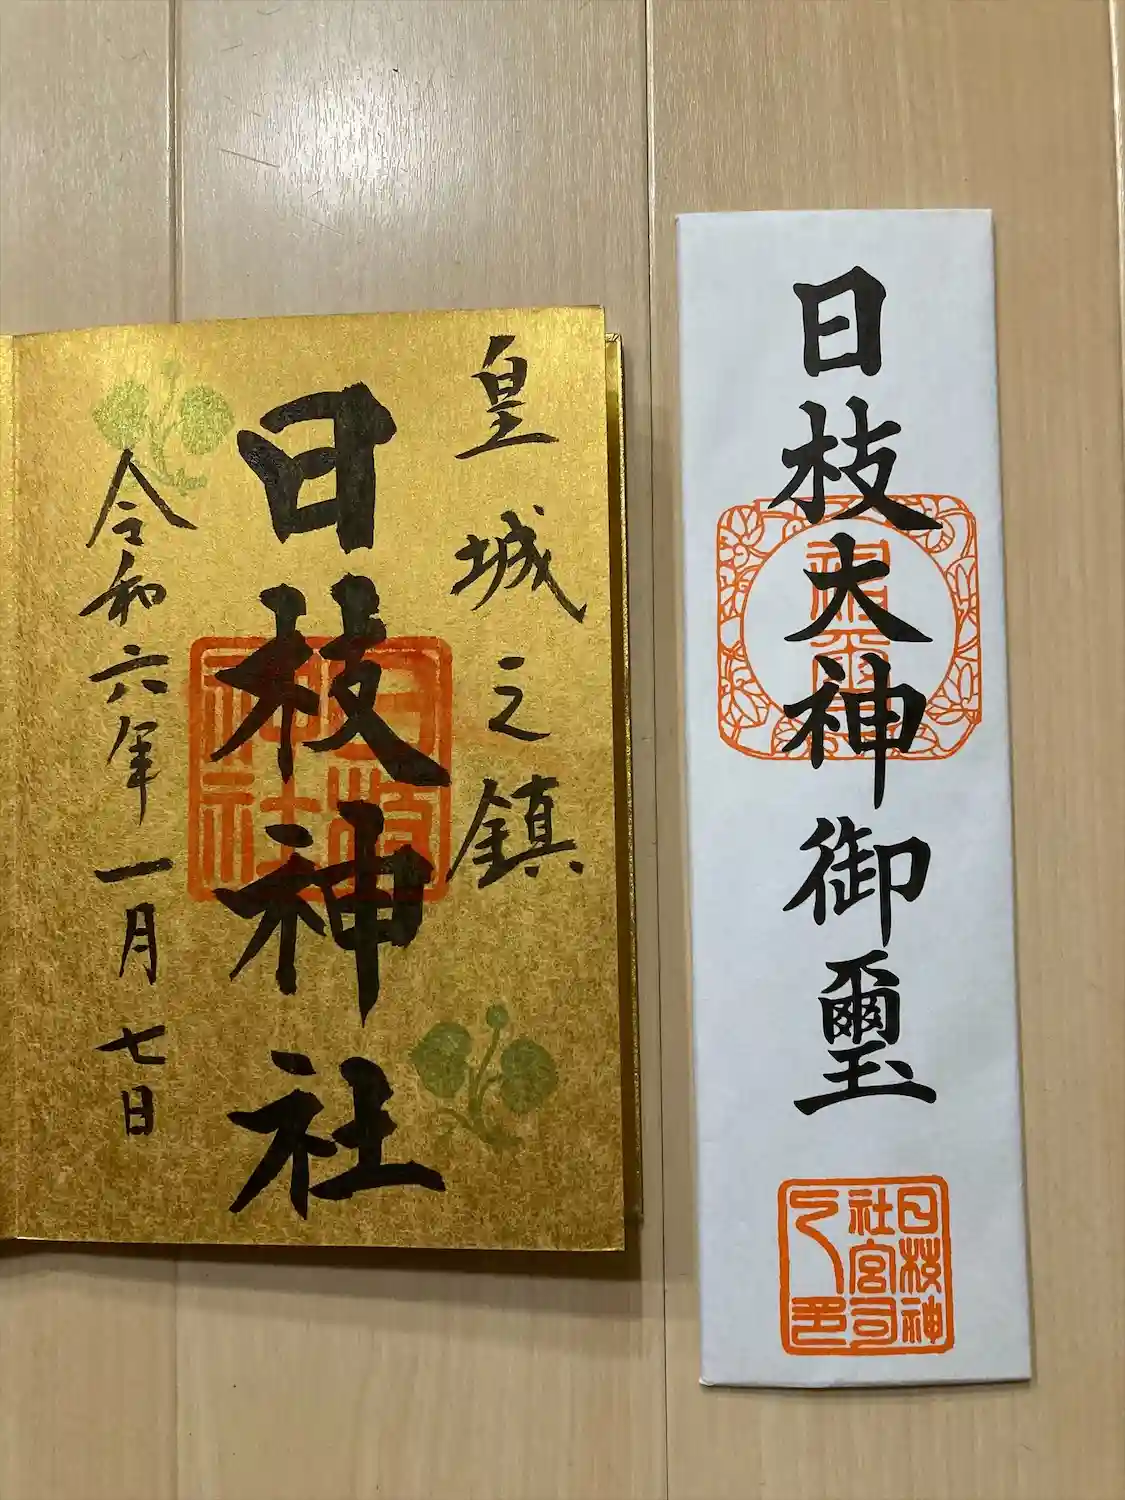 皇城之鎮
日枝神社
令和六年一月七日
日枝神社
日枝大神御璽
日枝神社宮司之印